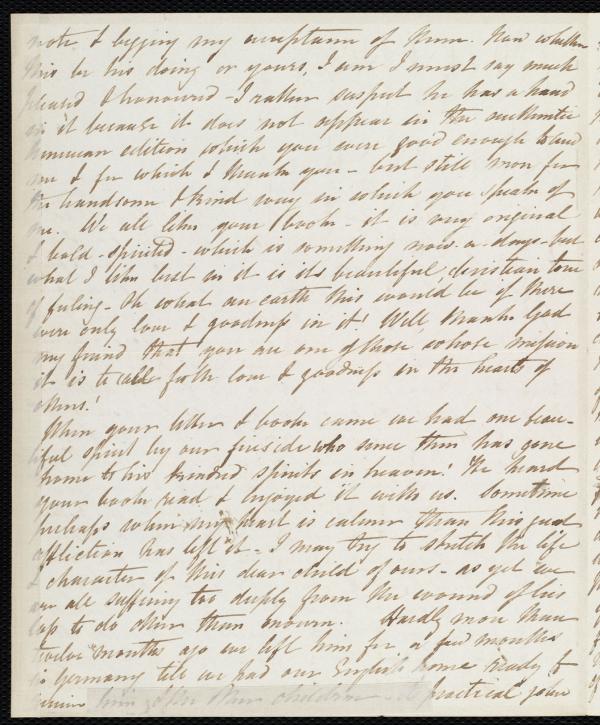 note, & begging my acceptance of them. Now whether
this be his doing or yours, I am I must say much
pleased & honoured - I rather suspect he has a hand
in it because it does not appear in the authentic
American edition which you were good enough to send
me & for which I thank you - but still more for
the handsome & kind way in which you speak of
me. We all like your book - it is very original
& bold - spirited - which is something now-a-days - but
what I like best in it is its beautiful, christian tone
of feeling - Oh what an earth this would be if there
were only love & goodness in it! Well, thank God
my friend that you are one of those whose mission
it is to call forth love & goodness in the hearts of
others!
When your letter & book came we had one beau-
tiful spirit by our fireside who since then has gone
home to his kindred spirits in heaven! He heard
your book read & enjoyed it with us. Sometime
perhaps when my heart is calmer than this great
affliction has left it - I may try to sketch the life
& character of this dear child of ours - as yet we
are all suffering too deeply from the wound of his
loss to do other than mourn. Hardly more than
twelve months ago we left him for a few months
in Germany till we had our English home ready to
receive him & the other children - A practical john